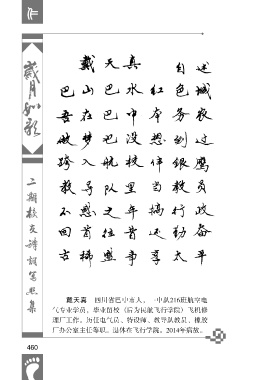 岁月如歌
二期校友诗词笔墨集
戴天真 自述
巴山巴水红色城
吾在巴中本务农
做梦也没想到过
跨入航校伴银鹰
教导队里当教员
不惑之年搞行政
回首往昔还勤奋
古稀盛事享太平
戴天真 四川省巴中市人，一中队216班航空电
气专业学员，毕业留校（后为民航飞行学院）飞机修
理厂工作。历任电气员、特设师、教导队教员、橡胶
厂办公室主任等职。退休在飞行学院。2014年病故。
460